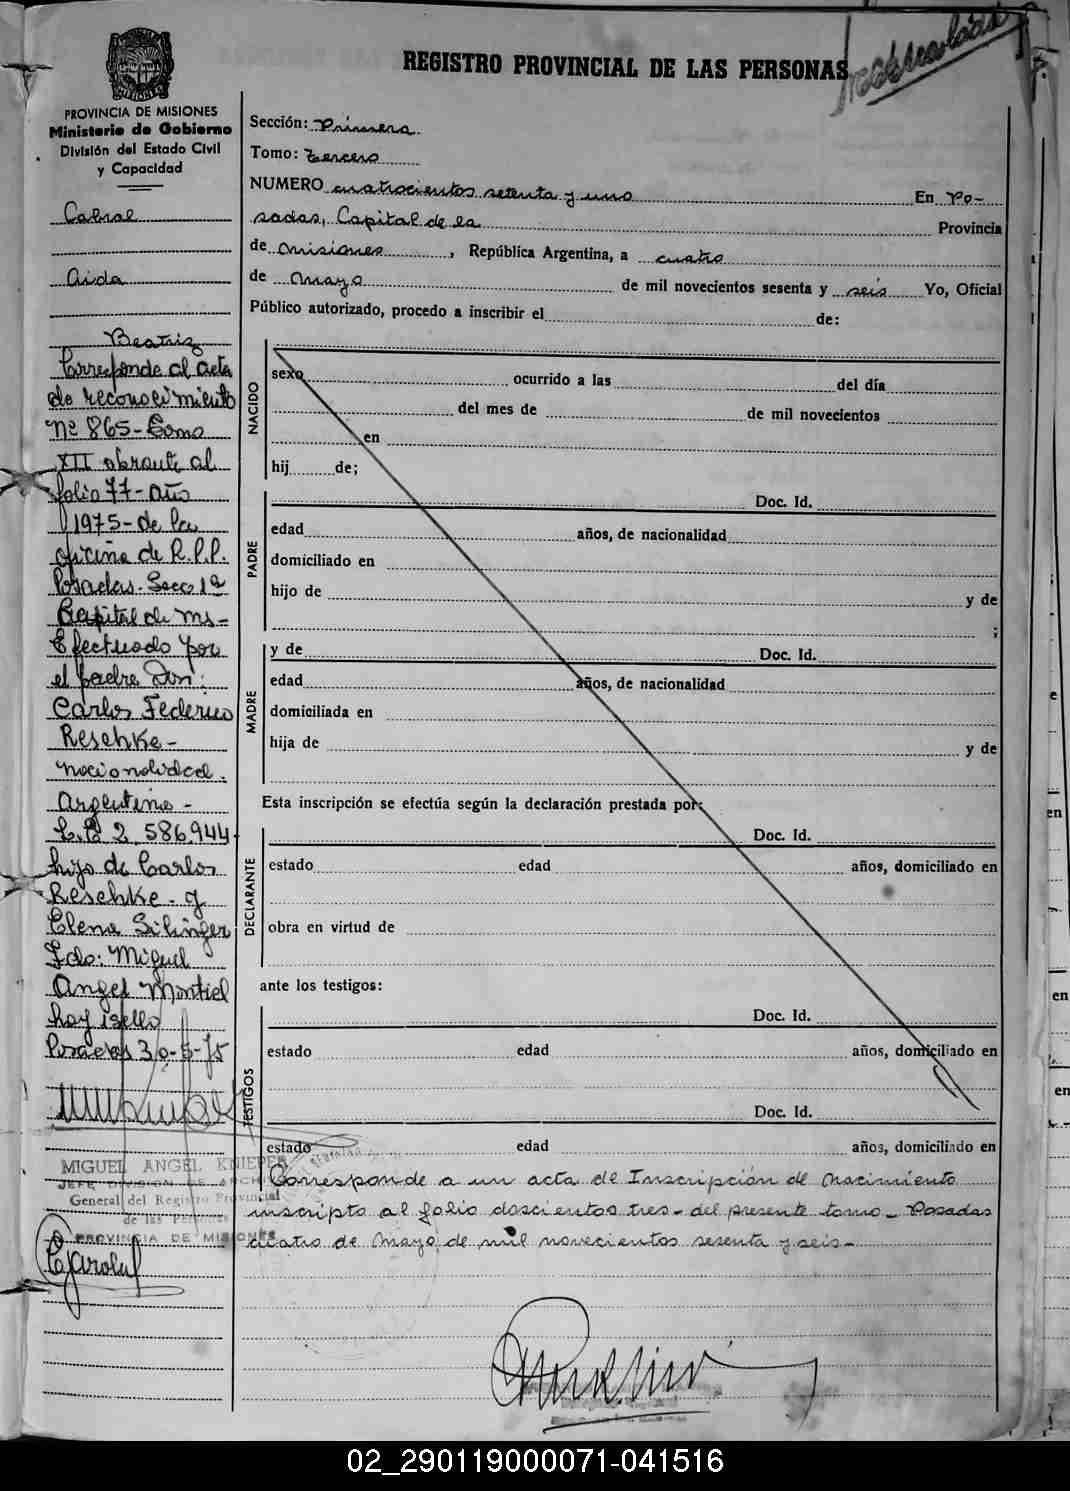 REGISTRO PROVINCIAL DE LAS PERSONAS
PROVINCIA DE MISIONES
Ministerio de Gobierno
División del Estado Civil
y Capacidad
Cabral
Aida
Beatriz
Corresponde al acta
de reconocimiento
Nº 865- Tomo
XII obrante al
folio 77- año
1975- de la
oficina de R.P.P.
Posadas. Secc 1ª
Capital de ms-
Efectuado por
el padre Don:
Carlos Federico
Reschke-
nacionalidad.
Argentina-
L.E 2.586.944-
hijo de Carlos
Reschke- y
Elena Silinger
Fdo: Miguel
Angel Montiel
hay sello
Posadas 30-5-75
MIGUEL ANGEL KNIEPER
JEFE DIVISION DE ARCHI
General del Registro Provincial
de las Personas
PROVINCIA DE MISIONES
Sección: Primera
Tomo: tercero
NUMERO cuatrocientos setenta y uno En Po-
sadas, Capital de la Provincia
de Misiones, República Argentina, a cuatro
de Mayo de mil novecientos sesenta y seis Yo, Oficial
Público autorizado, procedo a inscribir el de:
NACIDO
sexo ocurrido a las del día
del mes de de mil novecientos
en
hij de;
PADRE
Doc. Id.
edad años, de nacionalidad
domiciliado en
hijo de y de
;
MADRE
y de Doc. Id.
edad años, de nacionalidad
domiciliada en
hija de y de
Esta inscripción se efectúa según la declaración prestada por:
DECLARANTE
Doc. Id.
estado edad años, domiciliado en
obra en virtud de
ante los testigos:
TESTIGOS
Doc. Id.
estado edad años, domiciliado en
Doc. Id.
estado edad años, domiciliado en
Corresponde a un acta de Inscripción de Nacimiento
inscripto al folio doscientos tres- del presente tomo- Posadas
cuatro de Mayo de mil novecientos sesenta y seis-
02_290119000071-041516